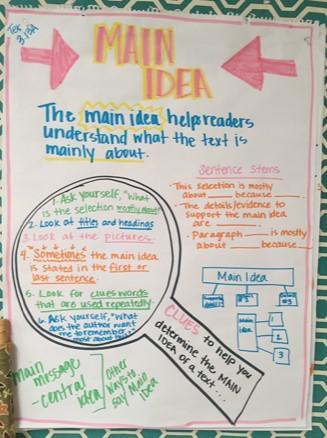 MAIN
IDEA
The main idea helps readers
understand what the text is
mainly about.
Sentence Stems
• This selection is mostly
about ____ because ____.
• The details/evidence to
support the main idea
are ____.
• Paragraph ____ is mostly
about ____ because ____.
1. Ask yourself, "What
is the selection mostly about?"
2. Look at titles and headings
3. Look at the pictures.
4. Sometimes the main idea
is stated in the first or
last sentence.
5. Look for clues words
that are used repeatedly.
6. Ask yourself, "What
does the author want
me to remember
most about
CLUES to help you
determine the MAIN
IDEA of a text...
Main Idea
Main
Idea
1
2
3
main message
- central idea
other
ways to
say Main
Idea